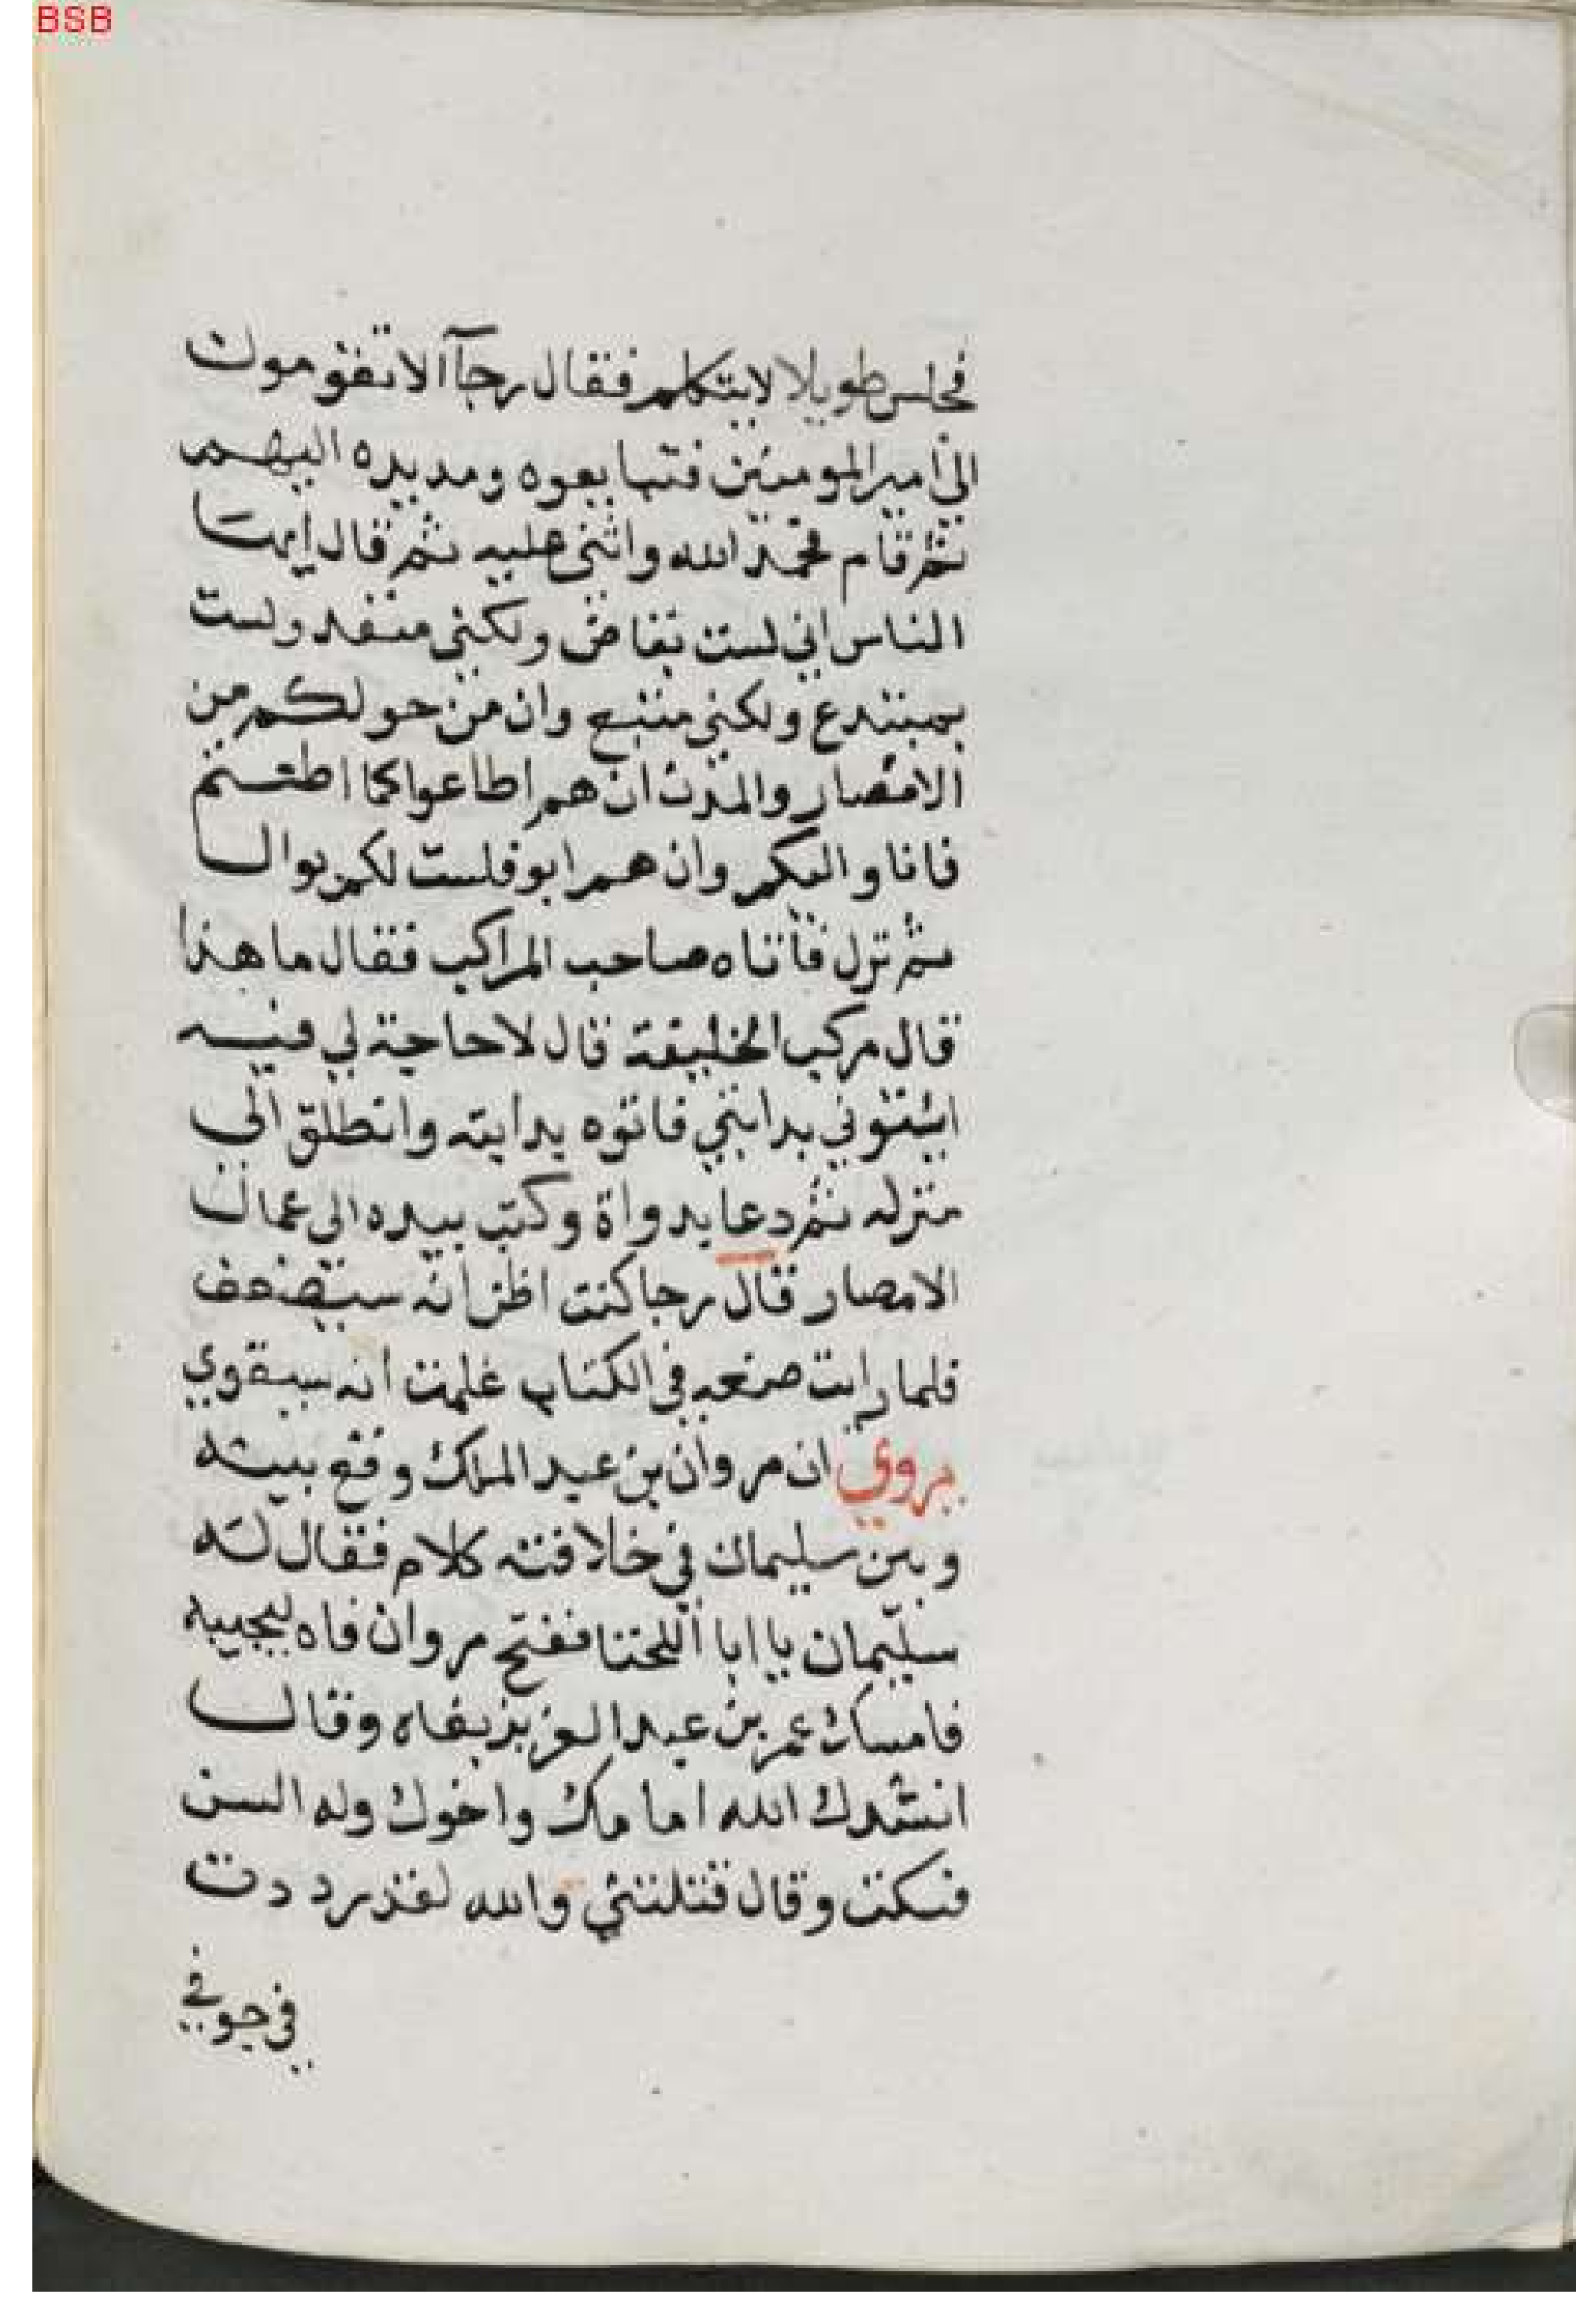 BSB
فجلس طويلا لا يتكلم فقال رجآ الا تقومون
الي امير المومنين فتبايعوه ومد يده اليهم
ثم قام فحمد الله واثنى عليه ثم قال ايها
الناس اني لست بقاض ولكني منفد ولست
بمبتدع ولكني متبع وان من حولكم من
الامصار والمدن ان هم اطاعوا كما اطعتم
فانا واليكم وان هم ابو فلست لكم بوال
ثم نزل فأتاه صاحب المراكب فقال ما هذا
قال مركب الخليفة قال لا حاجة لي فيه
ائتوني بدابتي فاتوه بدابته وانطلق الي
منزله ثم دعا بدواة وكتب بيده الى عمال
الامصار قال رجا كنت اظن انه سيضعف
فلما رايت صنعه في الكتاب علمت انه سيقوي
يروي ان مروان بن عبد الملك وقع بينه
وبين سليمان في خلافته كلام فقال له
سليمان يا ابا اللخنا ففتح مروان فاه ليجيبه
فامسك عمر بن عبد العزيز بفاه وقال
انشدك الله امامك واخوك وله السن
فسكت وقال قتلتني والله لقد رددت
في جوفي